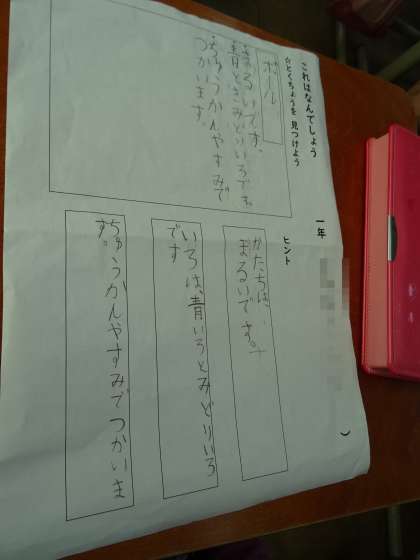 これはなんでしょう
☆とくちょうを見つけよう
一年
ボール
まるいです。
青ときみどりいろです。
ちゅうかんやすみで
つかいます。
ヒント
かたちは、
まるいです。
いろは、青いろとみどりいろ
です
ちゅうかんやすみでつかいま
す。